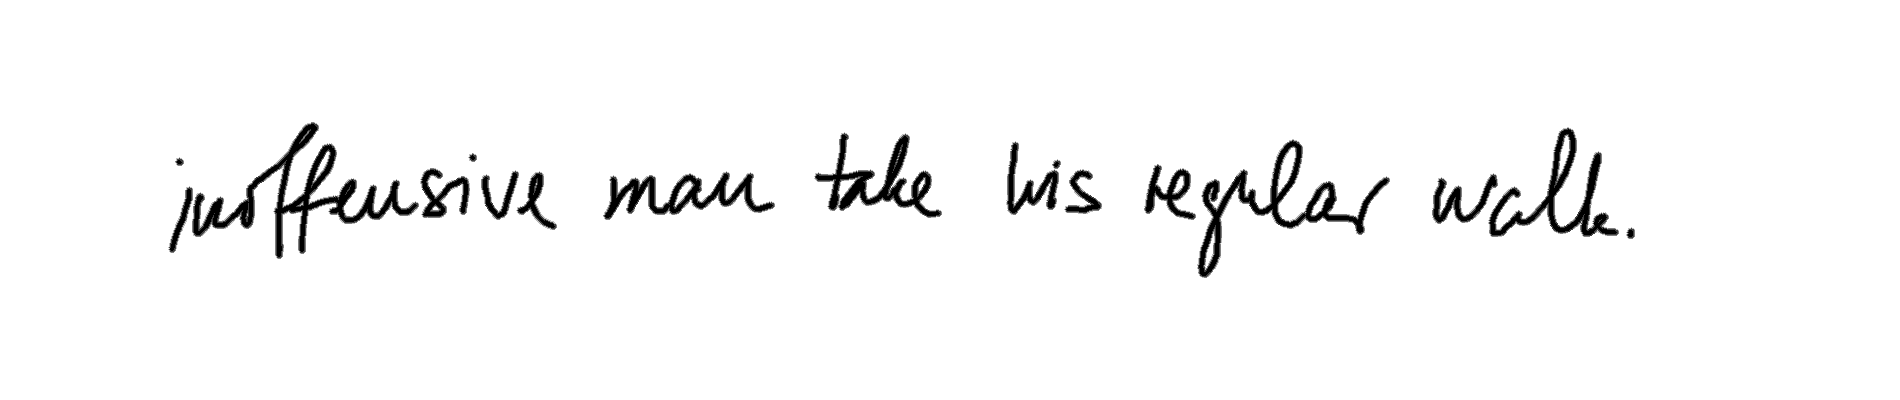 inoffensive man take his regular walk.